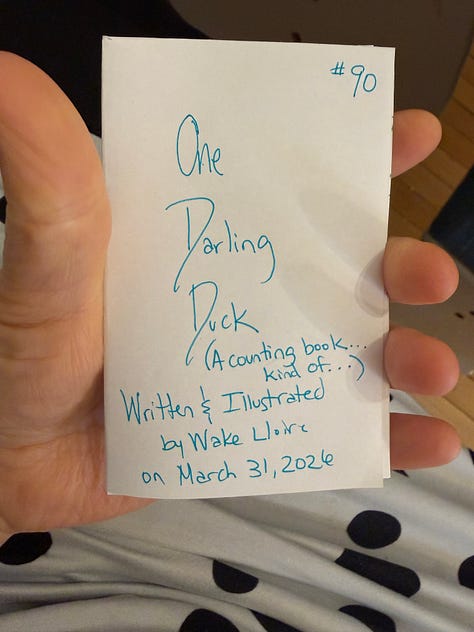 #90
One
Darling
Duck
(A counting book...
kind of...)
Written & Illustrated
by Wake Lloire
on March 31, 2026